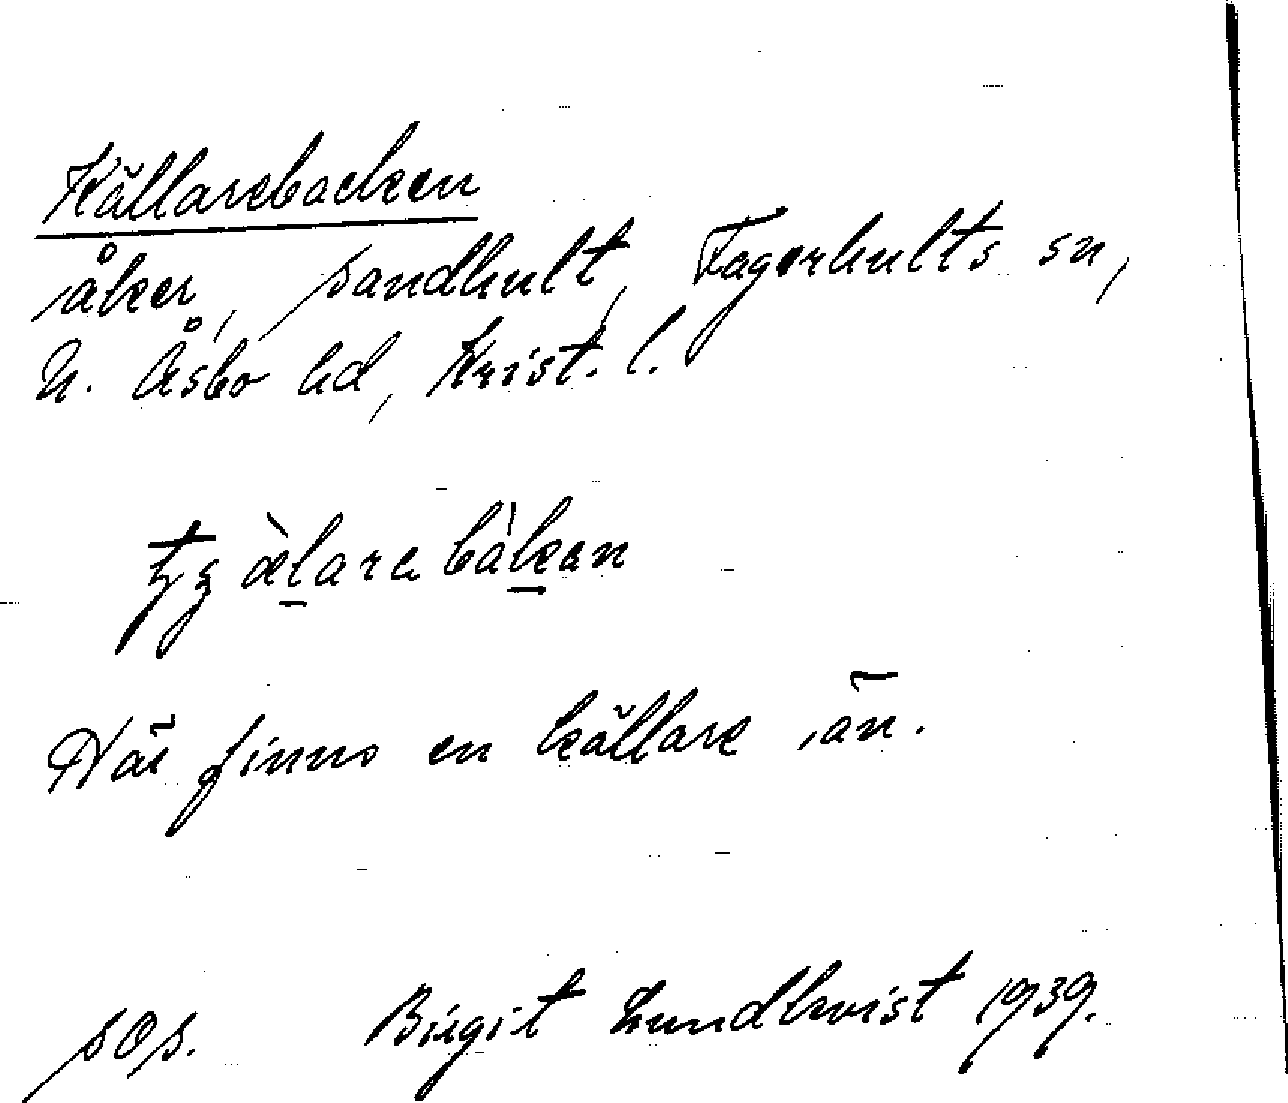 Källarebacken
åker, Sandhult, Fagerhults sn,
N. Åsbo hd, Krist. l.
Här finns en källare än.
sos. Birgit Lundkvist 1939.